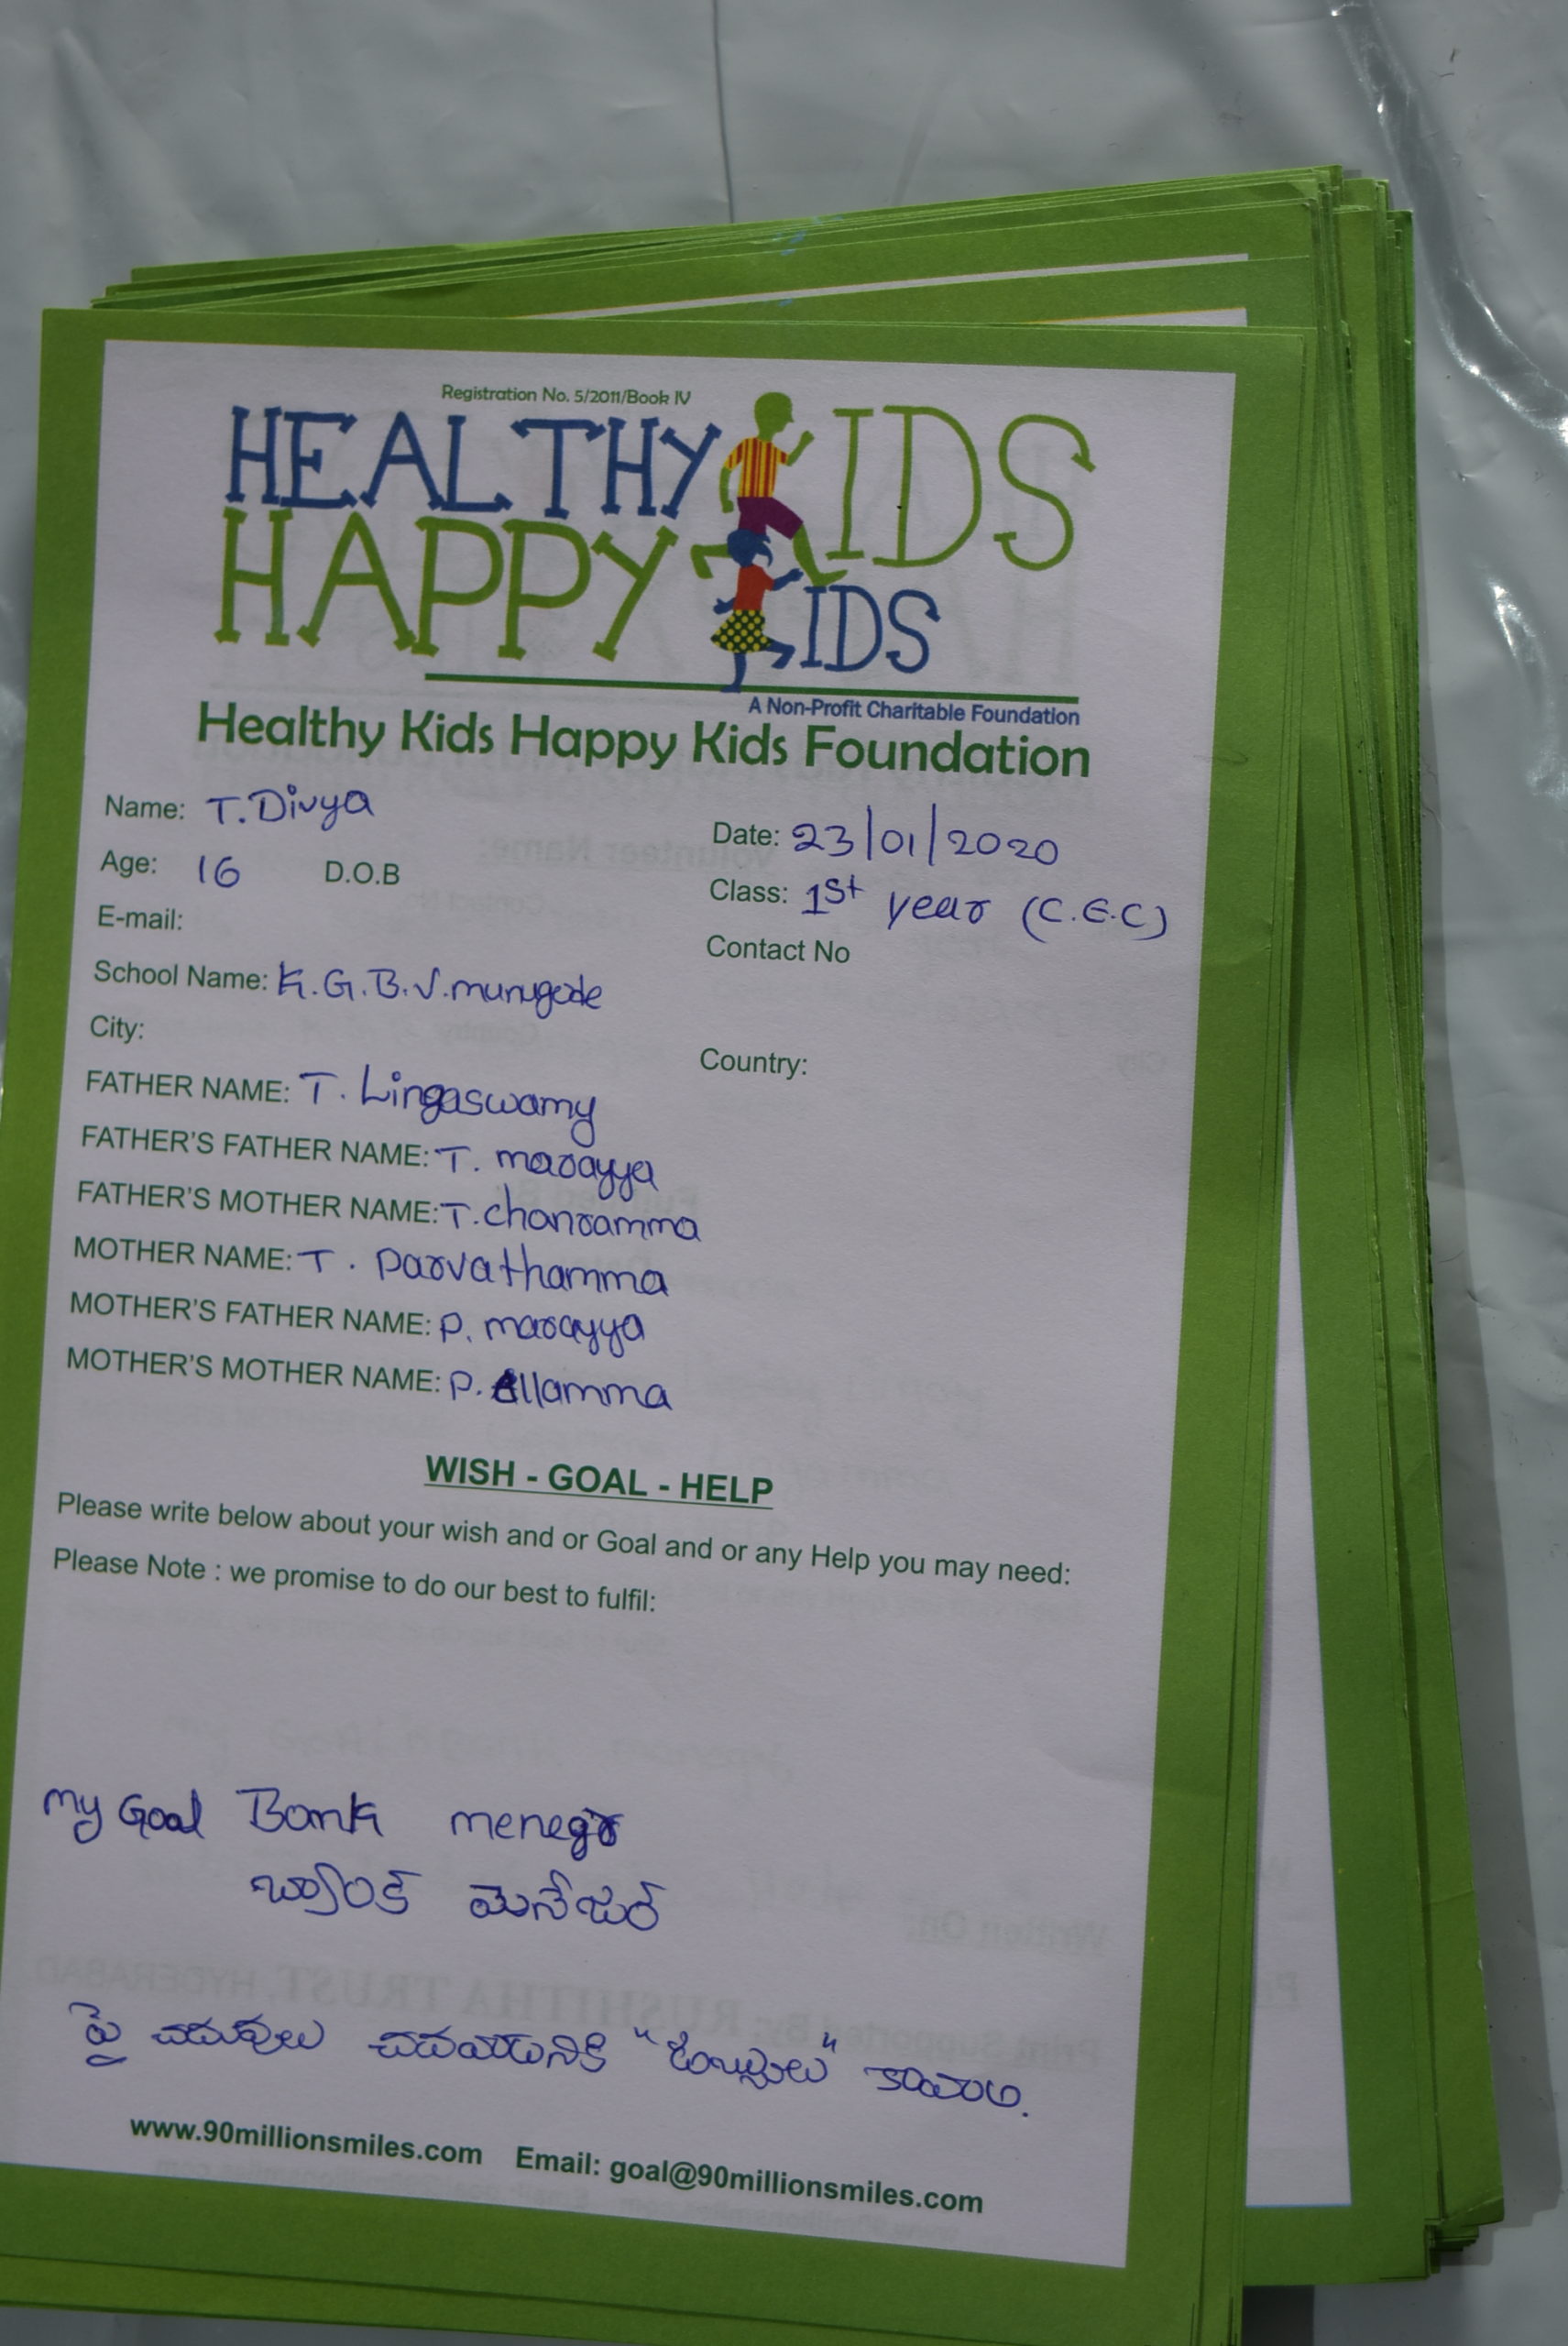 Registration No. 5/2011/Book IV
HEALTHY KIDS
HAPPY KIDS
A Non-Profit Charitable Foundation
Healthy Kids Happy Kids Foundation
Name: T. Divya
Date: 23/01/2020
Age: 16 D.O.B
Class: 1st year (C.E.C)
E-mail:
Contact No
School Name: K.G.B.V. munugode
City:
Country:
FATHER NAME: T. Lingaswamy
FATHER'S FATHER NAME: T. marayya
FATHER'S MOTHER NAME: T. chanramma
MOTHER NAME: T. parvathamma
MOTHER'S FATHER NAME: P. marayya
MOTHER'S MOTHER NAME: P. Ellamma
WISH - GOAL - HELP
Please write below about your wish and or Goal and or any Help you may need:
Please Note : we promise to do our best to fulfil:
my Goal Bank menegr
బ్యాంక్ మెనేజర్
పై చదువులు చదవడానికి కావాలి.
www.90millionsmiles.com Email: goal@90millionsmiles.com